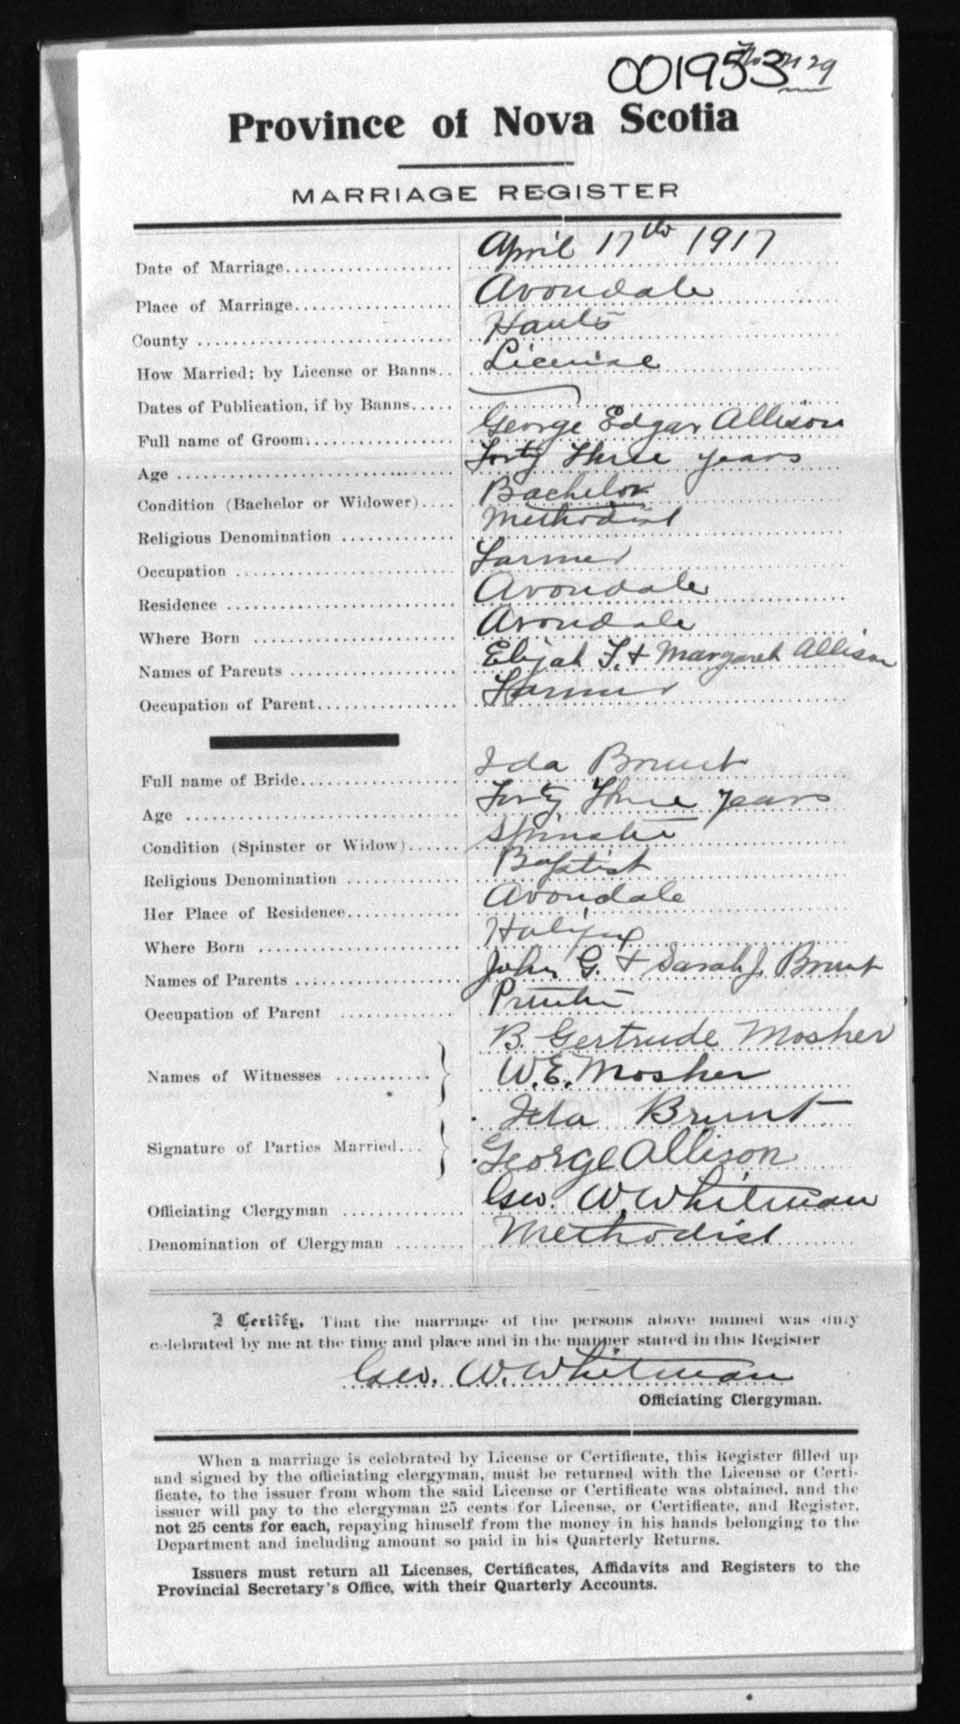 001953
Province of Nova Scotia
MARRIAGE REGISTER
Date of Marriage.................... April 17th 1917
Place of Marriage................... Avondale
County .............................. Hants
How Married: by License or Banns.. License
Dates of Publication, if by Banns.....
Full name of Groom.................. George Edgar Allison
Age ................................. Forty Three years
Condition (Bachelor or Widower).... Bachelor
Religious Denomination ............. Methodist
Occupation .......................... Farmer
Residence ........................... Avondale
Where Born ......................... Avondale
Names of Parents ................... Elijah T. + Margaret Allison
Occupation of Parent................ Farmer
Full name of Bride.................. Ida Brunt
Age ................................. Forty Three years
Condition (Spinster or Widow)...... Spinster
Religious Denomination ............. Baptist
Her Place of Residence.............. Avondale
Where Born ......................... Halifax
Names of Parents ................... John G. + Sarah J. Brunt
Occupation of Parent ............. Printer
B. Gertrude Mosher
Names of Witnesses ........... W. E. Mosher
Ida Brunt
Signature of Parties Married... George Allison
Officiating Clergyman ............. Geo. W. Whitman
Denomination of Clergyman ........ Methodist
I Certify, That the marriage of the persons above named was duly
celebrated by me at the time and place and in the manner stated in this Register
Geo. W. Whitman
Officiating Clergyman.
When a marriage is celebrated by License or Certificate, this Register filled up
and signed by the officiating clergyman, must be returned with the License or Certi-
ficate, to the issuer from whom the said License or Certificate was obtained, and the
issuer will pay to the clergyman 25 cents for License, or Certificate, and Register,
not 25 cents for each, repaying himself from the money in his hands belonging to the
Department and including amount so paid in his Quarterly Returns.
Issuers must return all Licenses, Certificates, Affidavits and Registers to the
Provincial Secretary's Office, with their Quarterly Accounts.